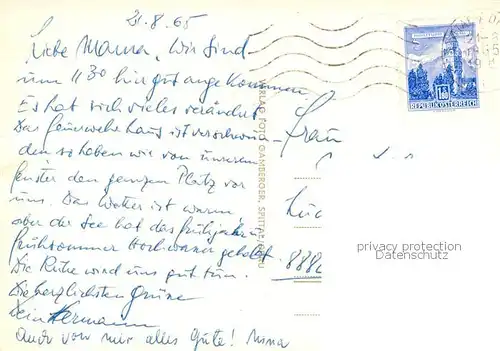 21.8.65
Liebe Mama, Wir sind
um 11 30 hier gut angekommen
Es hat sich vieles verändert
Das Feuerwehrhaus ist verschwun-
den so haben wir von unserem
Fenster den ganzen Platz vor
uns. Das Wetter ist warm
aber der See hat das Frühjahr u.
Frühsommer Hochwasser gehabt.
Die Ruhe wird uns gut tun.
Die herzlichsten Grüsse
Dein Hermann
Auch von mir alles Gute! Mina
VERLAG FOTO GAMBERGER, SPITTAL/DRAU
REPUBLIK ÖSTERREICH
Frau
privacy protection
Datenschutz